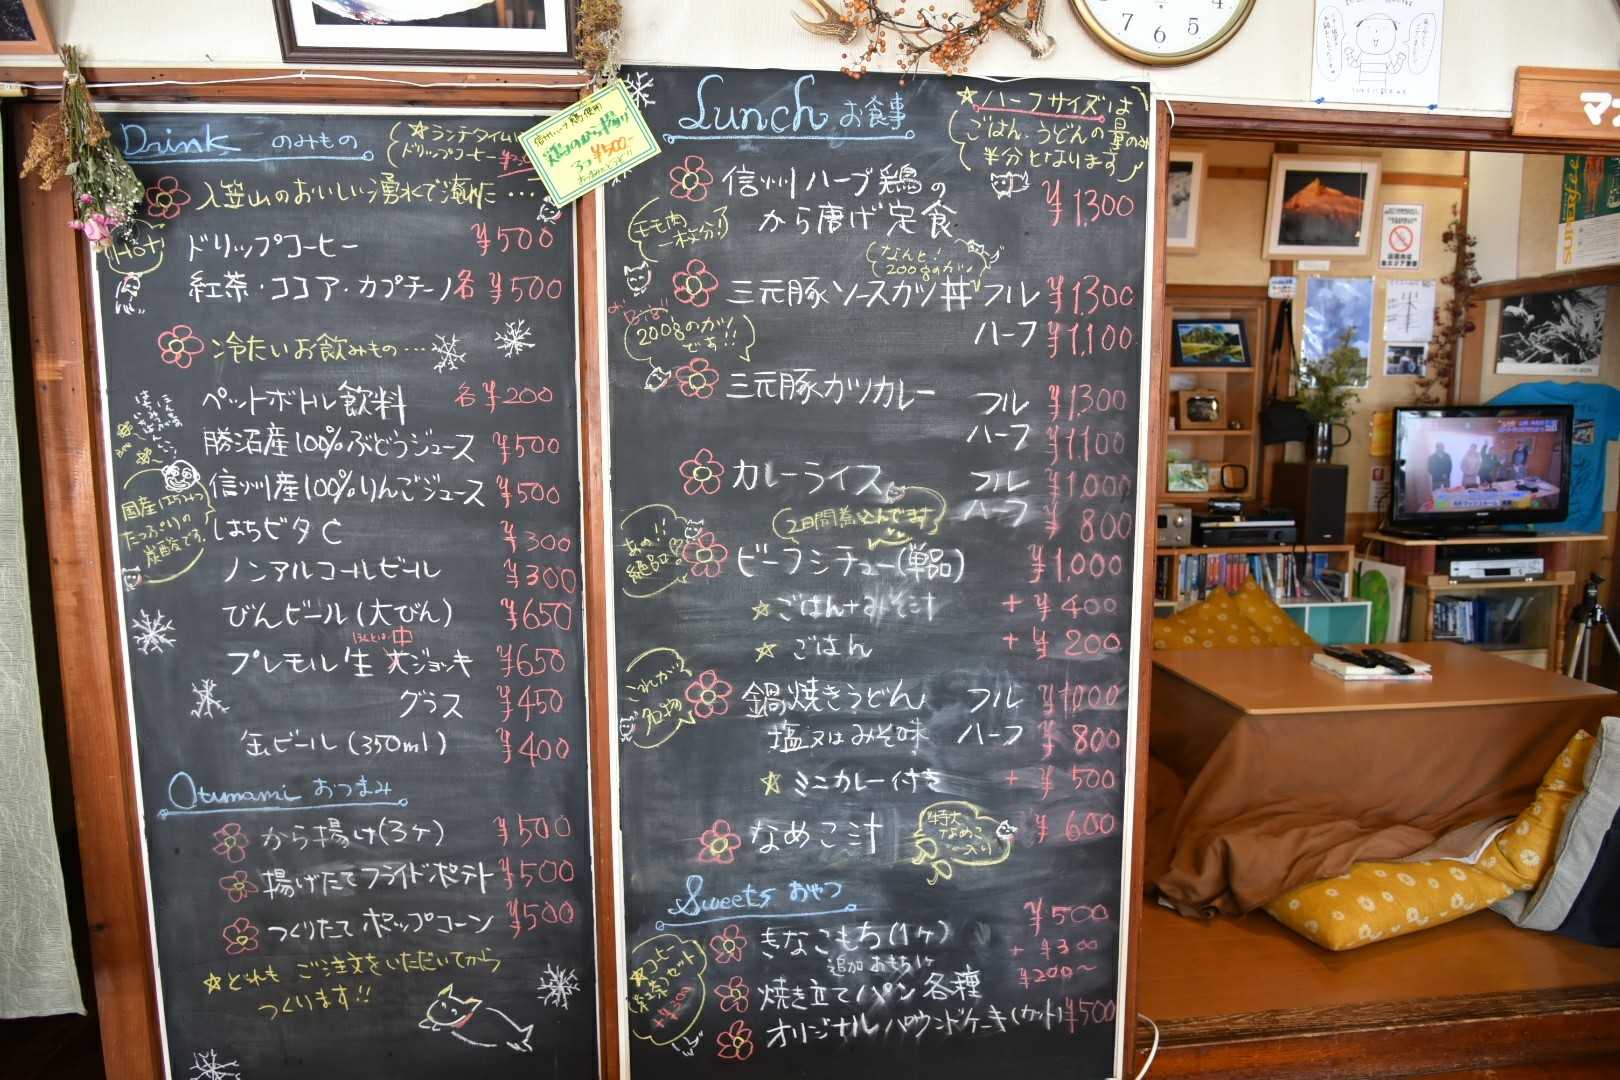 Drink のみもの
☆ランチタイム
ドリップコーヒー
入笠山のおいしい湧水で淹れた…
Hot
ドリップコーヒー ¥500
紅茶・ココア・カプチーノ 各¥500
冷たいお飲みもの…
ペットボトル飲料 各¥200
勝沼産100%ぶどうジュース ¥500
信州産100%りんごジュース ¥500
はちビタC ¥300
国産はちみつ
たっぷりの
炭酸です。
ノンアルコールビール ¥300
びんビール(大びん) ¥650
中
プレモル生 大ジョッキ ¥650
グラス ¥450
缶ビール(350ml) ¥400
Otumami おつまみ
から揚げ(3ヶ) ¥500
揚げたてフライドポテト ¥500
つくりたてポップコーン ¥500
☆どれも ご注文をいただいてから
つくります!!
3ヶ ¥500
Lunch お食事
☆ハーフサイズは
ごはん、うどんの量のみ
半分となります
信州ハーブ鶏の
から唐げ定食 ¥1300
モモ肉
一枚分!
なんと!
200gのカツ
三元豚ソースカツ丼 フル ¥1300
ハーフ ¥1,100
200gのカツ
です!!
三元豚カツカレー フル ¥1300
ハーフ ¥1100
カレーライス フル ¥1000
ハーフ ¥800
2日間煮込んでます
ビーフシチュー(単品) ¥1,000
絶品
☆ごはん+みそ汁 + ¥400
☆ごはん + ¥200
これが
名物
鍋焼きうどん フル ¥1000
塩又はみそ味 ハーフ ¥800
☆ミニカレー付き + ¥500
なめこ汁 ¥600
特大
なめこ
Sweets おやつ
きなこもち(1ヶ) ¥500
追加おもち1ヶ + ¥300
焼き立てパン各種 ¥200〜
オリジナルパウンドケーキ(カット) ¥500
☆コーヒー
紅茶セット
7 6 5 4
マ
SUPERFEET